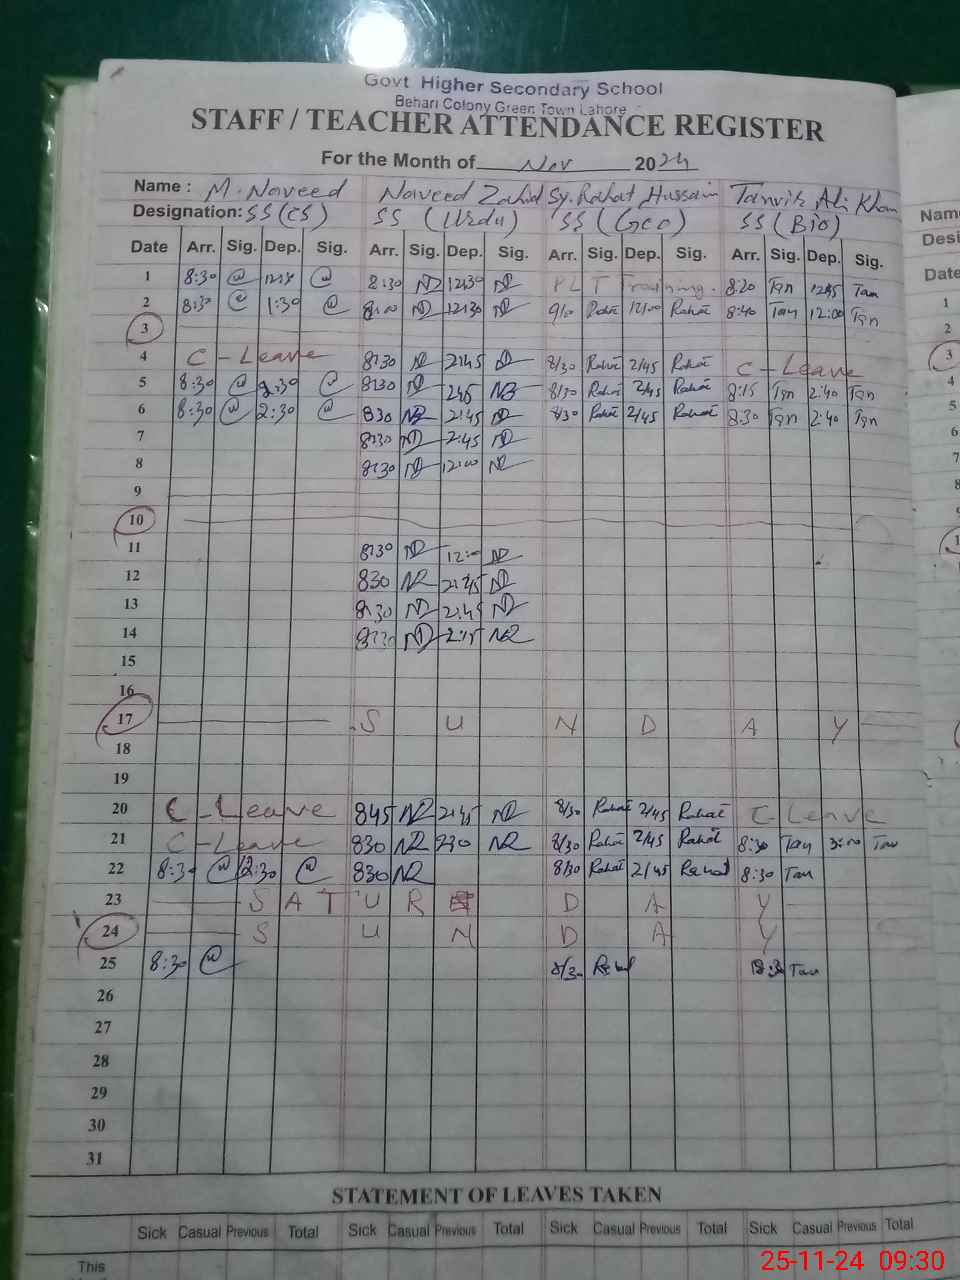 Govt Higher Secondary School
Behari Colony Green Town Lahore
STAFF / TEACHER ATTENDANCE REGISTER
For the Month of Nov 2024
Name : M. Naveed Naveed Zahid Sy. Rahat Hussain Tanvir Ali Khan
Designation: SS (CS) SS (Urdu) SS (Geo) SS (Bio)
Date Arr. Sig. Dep. Sig. Arr. Sig. Dep. Sig. Arr. Sig. Dep. Sig. Arr. Sig. Dep. Sig.
1 8:30 @ @ 8:30 12:30 PLT Training. 8:20 Tan 12:45 Tan
2 8:30 @ 1:30 @ 8:00 12:30 Rahat 12/00 Rahat 8:40 Tan 12:00 Tan
3
4 C-Leave 8:30 2:45 8/30 Rahat 2/45 Rahat C-Leave
5 8:30 @ 2:30 @ 8:30 245 8/30 Rahat 2/45 Rahat 8:15 Tan 2:40 Tan
6 8:30 @ 2:30 @ 830 2:45 8/30 Rahat 2/45 Rahat 8:30 Tan 2:40 Tan
7 8:30 2:45
8 8:30 12:00
9
10
11 8:30 12:00
12 830 2:45
13 8:30 2:45
14 8:30 2:45
15
16
17 S U N D A Y
18
19
20 C-Leave 845 2:45 8/30 Rahat 2/45 Rahat C-Leave
21 C-Leave 830 230 8/30 Rahat 2/45 Rahat 8:30 Tan 3:00 Tan
22 8:30 @ 2:30 @ 830 8/30 Rahat 2/45 Rahat 8:30 Tan
23 S A T U R D A Y
24 S U N D A Y
25 8:30 @ 8/30 8:30 Tan
26
27
28
29
30
31
STATEMENT OF LEAVES TAKEN
Sick Casual Previous Total Sick Casual Previous Total Sick Casual Previous Total Sick Casual Previous Total
This
25-11-24 09:30